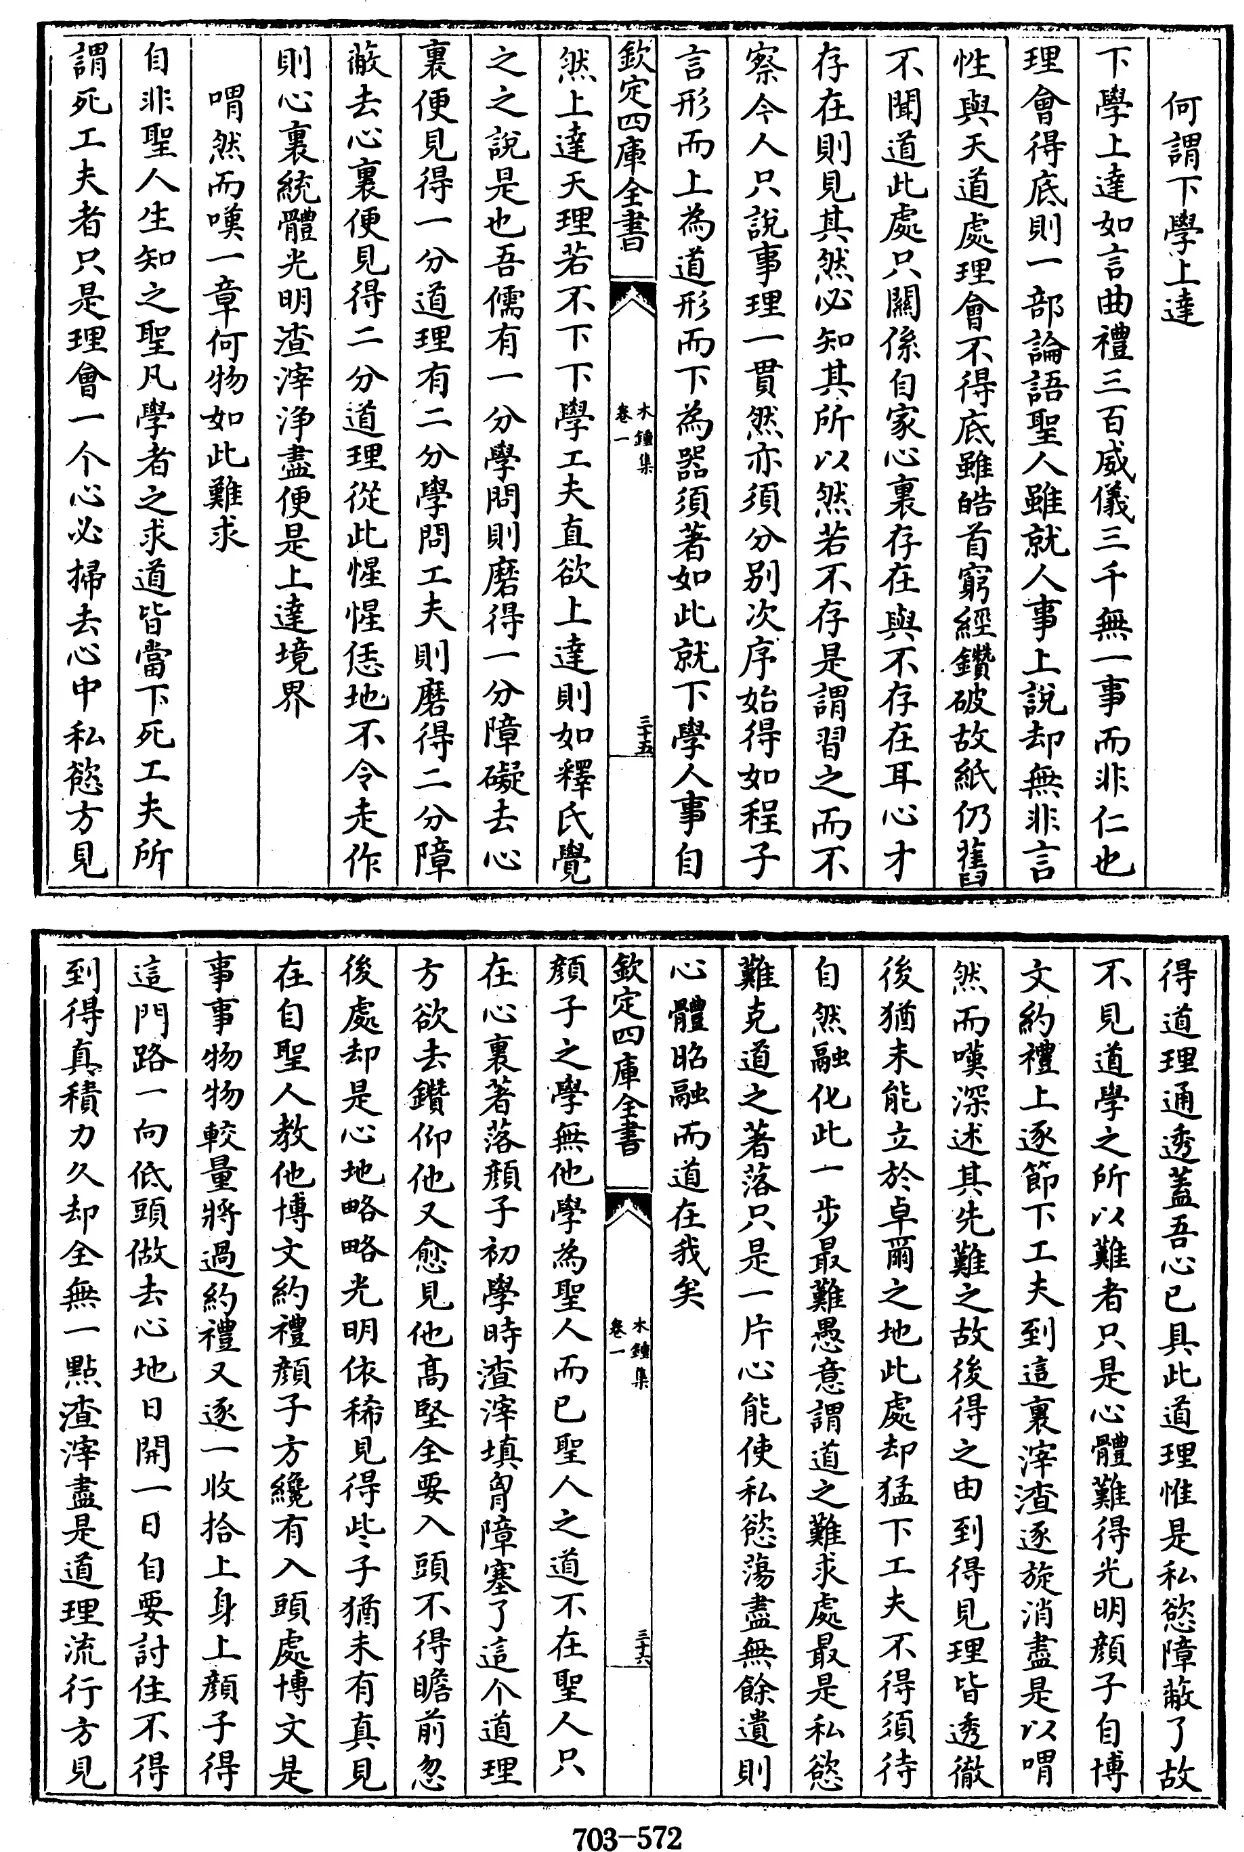 何謂下學上達
下學上達如言曲禮三百威儀三千無一事而非仁也
理會得底則一部論語聖人雖就人事上說却無非言
性與天道處理會不得底雖皓首窮經鑽破故紙仍舊
不聞道此處只關係自家心裏存在與不存在耳心才
存在則見其然必知其所以然若不存是謂習之而不
察今人只說事理一貫然亦須分别次序始得如程子
言形而上為道形而下為器須著如此就下學人事自
欽定四庫全書
木鍾集
卷一
三十五
然上達天理若不下下學工夫直欲上達則如釋氏覺
之之說是也吾儒有一分學問則磨得一分障礙去心
裏便見得一分道理有二分學問工夫則磨得二分障
蔽去心裏便見得二分道理從此惺惺恁地不令走作
則心裏統體光明渣滓淨盡便是上達境界
喟然而嘆一章何物如此難求
自非聖人生知之聖凡學者之求道皆當下死工夫所
謂死工夫者只是理會一个心必掃去心中私慾方見
得道理通透蓋吾心已具此道理惟是私慾障蔽了故
不見道學之所以難者只是心體難得光明顔子自博
文約禮上逐節下工夫到這裏滓渣逐旋消盡是以喟
然而嘆深述其先難之故後得之由到得見理皆透徹
後猶未能立於卓爾之地此處却猛下工夫不得須待
自然融化此一步最難愚意謂道之難求處最是私慾
難克道之著落只是一片心能使私慾蕩盡無餘遺則
心體昭融而道在我矣
欽定四庫全書
木鍾集
卷一
三十六
顔子之學無他學為聖人而已聖人之道不在聖人只
在心裏著落顔子初學時渣滓填胷障塞了這个道理
方欲去鑽仰他又愈見他高堅全要入頭不得瞻前忽
後處却是心地略略光明依稀見得些子猶未有真見
在自聖人教他博文約禮顔子方纔有入頭處博文是
事事物物較量將過約禮又逐一收拾上身上顔子得
這門路一向低頭做去心地日開一日自要討住不得
到得真積力久却全無一點渣滓盡是道理流行方見
703-572